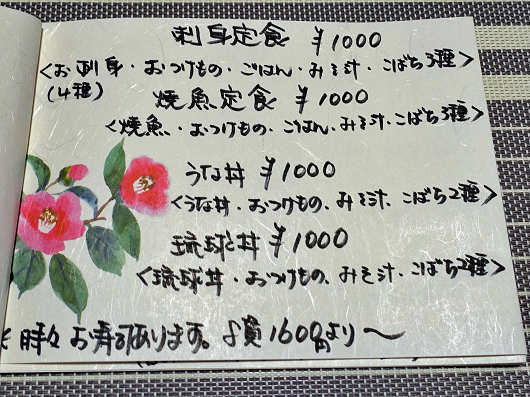 刺身定食 ¥1000
<お刺身・おつけもの・ごはん・みそ汁・こばち3種>
(4種)
焼魚定食 ¥1000
<焼魚・おつけもの・ごはん・みそ汁・こばち3種>
うな丼 ¥1000
<うな丼・おつけもの・みそ汁・こばち2種>
琉球丼 ¥1000
<琉球丼・おつけもの・みそ汁・こばち2種>
時々お寿司あります。 1600円より〜